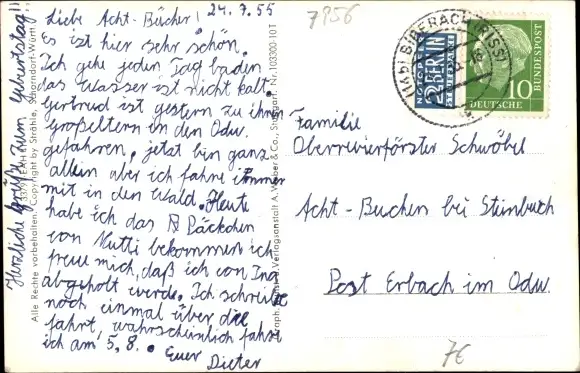 Herzliche Grüße zum Geburtstag!!
24.7.55
Liebe Acht-Bücher!
Es ist hier sehr schön.
Ich gehe jeden Tag baden
das Wasser ist nicht kalt.
Gertrud ist gestern zu ihren
Großeltern in den Odw.
gefahren, jetzt bin ganz
allein aber ich fahre immer
mit in den Wald. Heute
habe ich das Päckchen
von Mutti bekommen ich
freue mich, daß ich von
abgeholt werde. Ich schreibe
noch einmal über die
fahrt, wahrscheinlich fahre
ich am 5.8. Euer Dieter
Alle Rechte vorbehalten. Copyright by Strähle, Schorndorf-Württ
Verlagsanstalt A. Weber & Co., Stuttgart. Nr. 103300-10T
7856
(14b) BIBERACH (RISS)
2 BERLIN
NOTOPFER
STEUERMARKE
10
DEUTSCHE
BUNDESPOST
Familie
Oberrevierförster Schwöbel
Acht-Buchen bei Steinbuch
Post Erbach im Odw.
7€